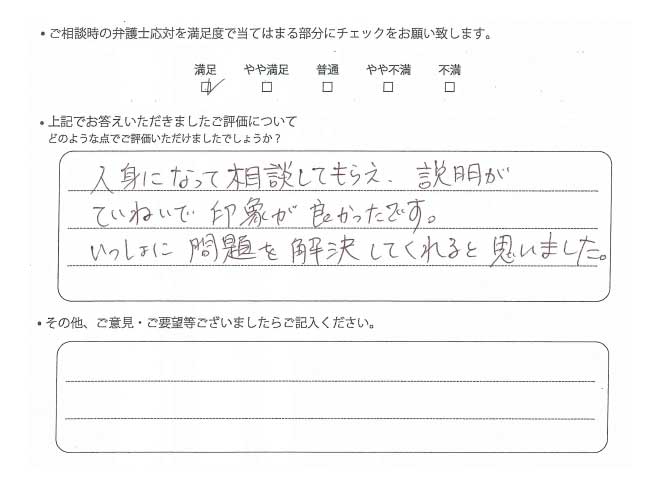 ・ご相談時の弁護士応対を満足度で当てはまる部分にチェックをお願い致します。
満足 やや満足 普通 やや不満 不満
・上記でお答えいただきましたご評価について
どのような点でご評価いただけましたでしょうか？
入身になって相談してもらえ、説明が
ていねいで印象が良かったです。
いっしょに問題を解決してくれると思いました。
・その他、ご意見・ご要望等ございましたらご記入ください。